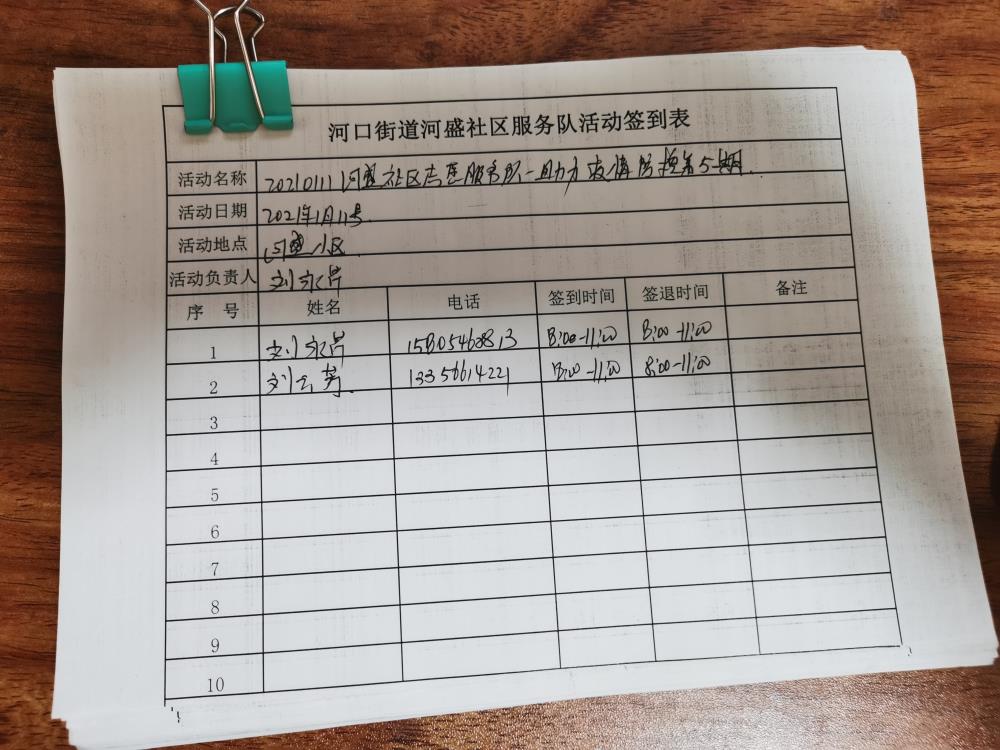 河口街道河盛社区服务队活动签到表
活动名称 20210111河盛社区志愿服务队-助力疫情防控第5期.
活动日期 2021年1月11号.
活动地点 河盛小区.
活动负责人 刘永芹
序 号 姓名 电话 签到时间 签退时间 备注
1 刘永芹 8:00-11:00 8:00-11:00
2 刘云芳 13356614221 8:00-11:00 8:00-11:00
3
4
5
6
7
8
9
10